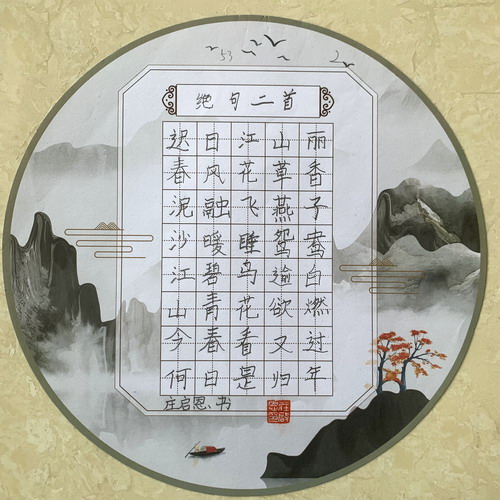 53 2
绝句二首
迟日江山丽
春风花草香
泥融飞燕子
沙暖睡鸳鸯
江碧鸟逾白
山青花欲燃
今春看又过
何日是归年
庄启恩、书